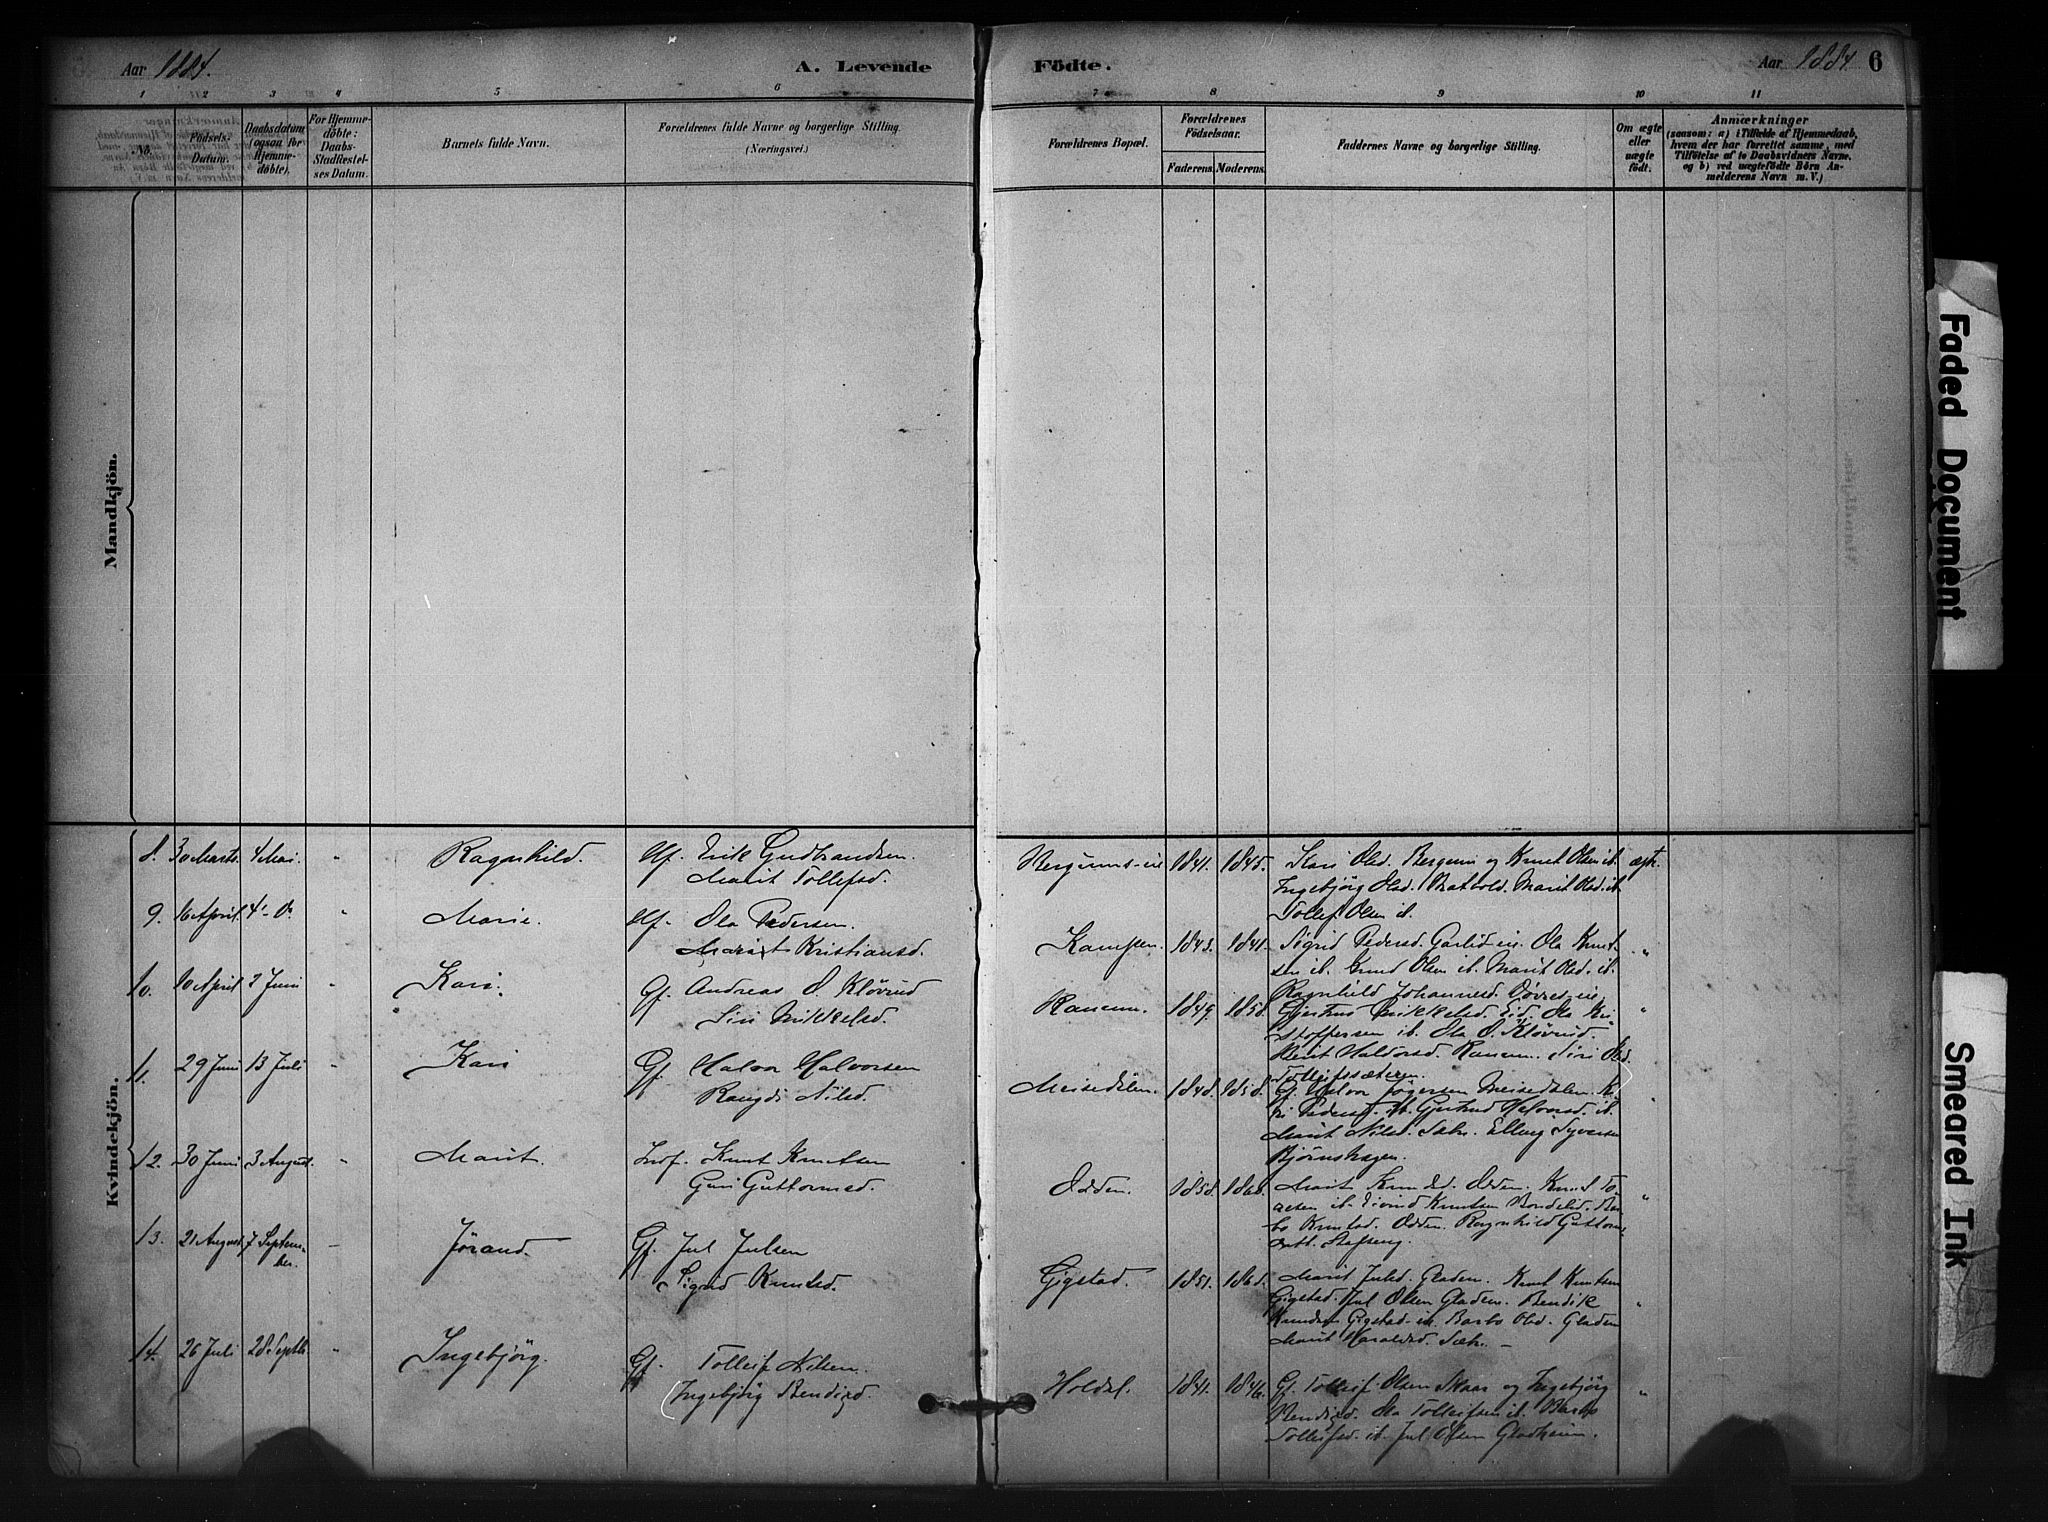 Aar 1884.
A. Levende
Födte.
Aar 1884
6
1
2
3
4
5
6
7
8
9
10
11
No.
Födsels-
Datum.
Daabsdatum
(ogsaa for
Hjemme-
döbte).
For Hjemme-
döbte:
Daabs-
Stadfæstel-
ses Datum.
Barnets fulde Navn.
Forældrenes fulde Navne og borgerlige Stilling
(Næringsvei.)
Forældrenes Bopæl.
Forældrenes
Födselsaar.
Faderens. Moderens.
Faddernes Navne og borgerlige Stilling.
Om ægte
eller
uægte
födt.
Anmærkninger
(saasom: a) i Tilfælde af Hjemmedaab,
hvem der har forrettet samme, med
Tilföielse af to Daabsvidners Navne,
og b) ved uægtefödte Börn An-
melderens Navn m. V.)
Mandkjön.
Kvindekjön.
8. 30 Marts. 4 Mai. " Ragnhild. Hf. Erik Gudbrandsen.
Marit Tollefsd.
Bergums-eie 1841. 1845. Kari Olsd. Bergum og Knut Olsen ib. ægte.
Ingebjörg Olsd. Marit Olsd. ib.
Tollef Olsen ib.
9. 16 April. 4 " Marie. Hf. Ola Pedersen.
Marit Kristiansd.
Kampen. 1843. 1841. Sigrid Pedersd. Garlid-eie. Ola Knut-
sen ib. Knud Olsen ib. Marit Olsd. ib. "
Ragnhild Johannesd.
10. 10 April 2 Juni " Kari. Gf. Andreas O. Kløvrud
Siri Mikkelsd.
Ranum. 1849. 1858. Gjertrud Mikkelsd. Eid. Ola Kri-
stoffersen ib. Ola O. Kløvrud. "
Marit Haldorsd. Ranum. Siri Olsd.
Tolleifssæteren.
11. 29 Juni 13 Juli " Kari Gf. Halvor Halvorsen
Rangdi Nilsd.
Meisedalen. 1848. 1858. Gf. Halvor Jögersen Meisedalen. Ka-
ri Pedersd. ib. Gjertrud Halvorsd. ib. "
Marit Nilsd. Sæbr. Elling Syversen
Bjørnshagen.
12. 30 Juni 3 August. " Marit. Indf. Knut Knutsen
Guri Guttormsd.
Odden. 1858. 1868. Marit Knudsd. Odden. Knut
ib. Eivind Knutsen "
Knutsd. Odden. Ragnhild Guttorms-
datt.
13. 21 August. 7 Septem-
ber. – Jörand. Gf. Jul Julsen
Sigrid Knutsd.
Gigstad. 1851. 1868. Marit Julsd. Gladen. Knut Knutsen
Gigstad. Jul Olsen Gladen. Bendik "
Knudsen Gigstad-eie. Barbo Olsd. Gladen
Marit Haraldsd. Sæbr. –
14. 26 Juli 28 Septb. " Ingebjörg. Gf. Tolleif Nilsen.
Ingebjörg Bendixd.
Holdal. 1841. 1846. Gf. Tolleif Olsen Skaar og Ingebjörg
Bendixd. Ola Tolleifsen ib. Barbo "
Tolleifsd. ib. Jul Olsen Gladheim.
Faded Document
Smeared Ink